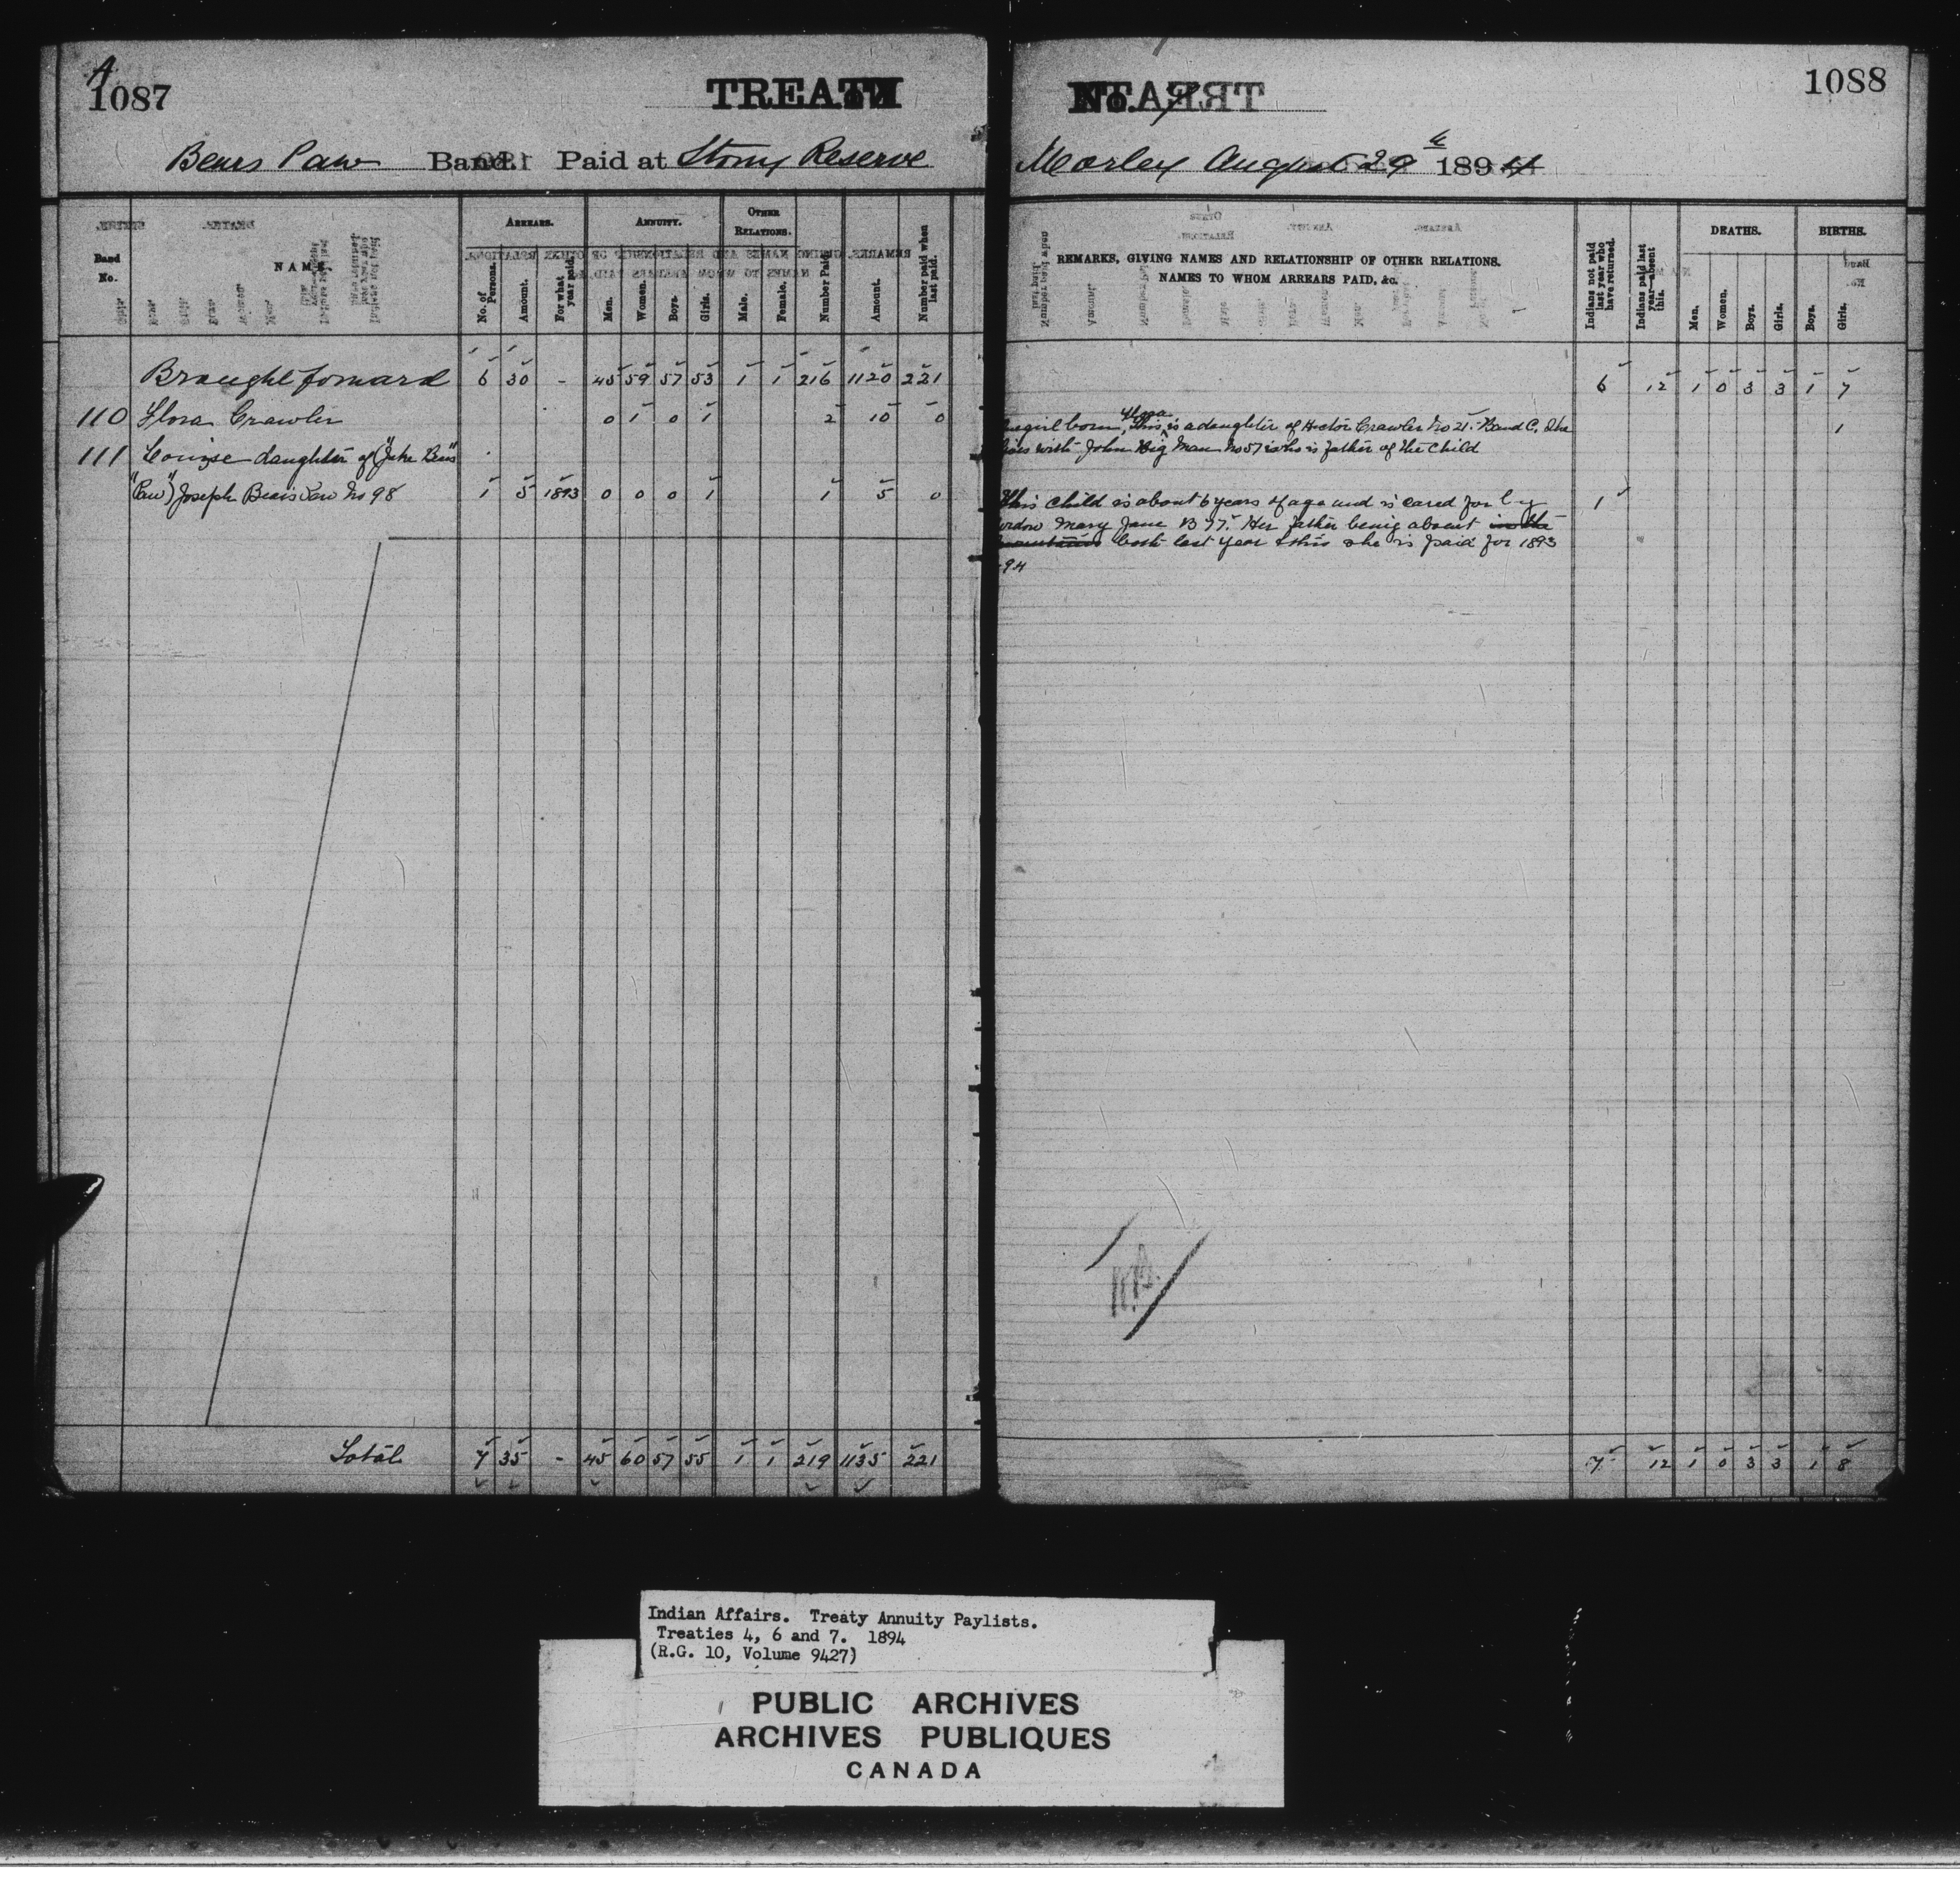 A
1087
TREATY
Bears Paw Band. Paid at Stony Reserve
Band No.
NAME.
ARREARS.
No. of Persons.
Amount.
For what year paid.
ANNUITY.
Men.
Women.
Boys.
Girls.
OTHER RELATIONS.
Male.
Female.
Number Paid.
Amount.
Number paid when last paid.
Brought forward 6 30 - 45 59 57 53 1 1 216 1120 221
110 Flora Crawler 0 1 0 1 2 10 0
111 Louise daughter of ("Jake Bears
"Paw") Joseph Bears Paw No 98 1 5 1893 0 0 0 1 1 5 0
Total 7 35 - 45 60 57 55 1 1 219 1135 221
No. 7
1088
Morley August 29th 1894
REMARKS, GIVING NAMES AND RELATIONSHIP OF OTHER RELATIONS.
NAMES TO WHOM ARREARS PAID, &c.
Indians not paid last year who have returned.
Indians paid last year—absent this.
DEATHS.
Men.
Women.
Boys.
Girls.
BIRTHS.
Boys.
Girls.
6 12 1 0 3 3 1 7
girl born, This Flora is a daughter of Hector Crawler No 21. Band C. She 1
lives with John Big Man No 57 who is father of the child
This child is about 6 years of age and is cared for by 1
widow Mary Jane B 77. Her father being absent in the
mountains both last year & this she is paid for 1893
-94
7 12 1 0 3 3 1 8
Indian Affairs. Treaty Annuity Paylists.
Treaties 4, 6 and 7. 1894
(R.G. 10, Volume 9427)
PUBLIC ARCHIVES
ARCHIVES PUBLIQUES
CANADA